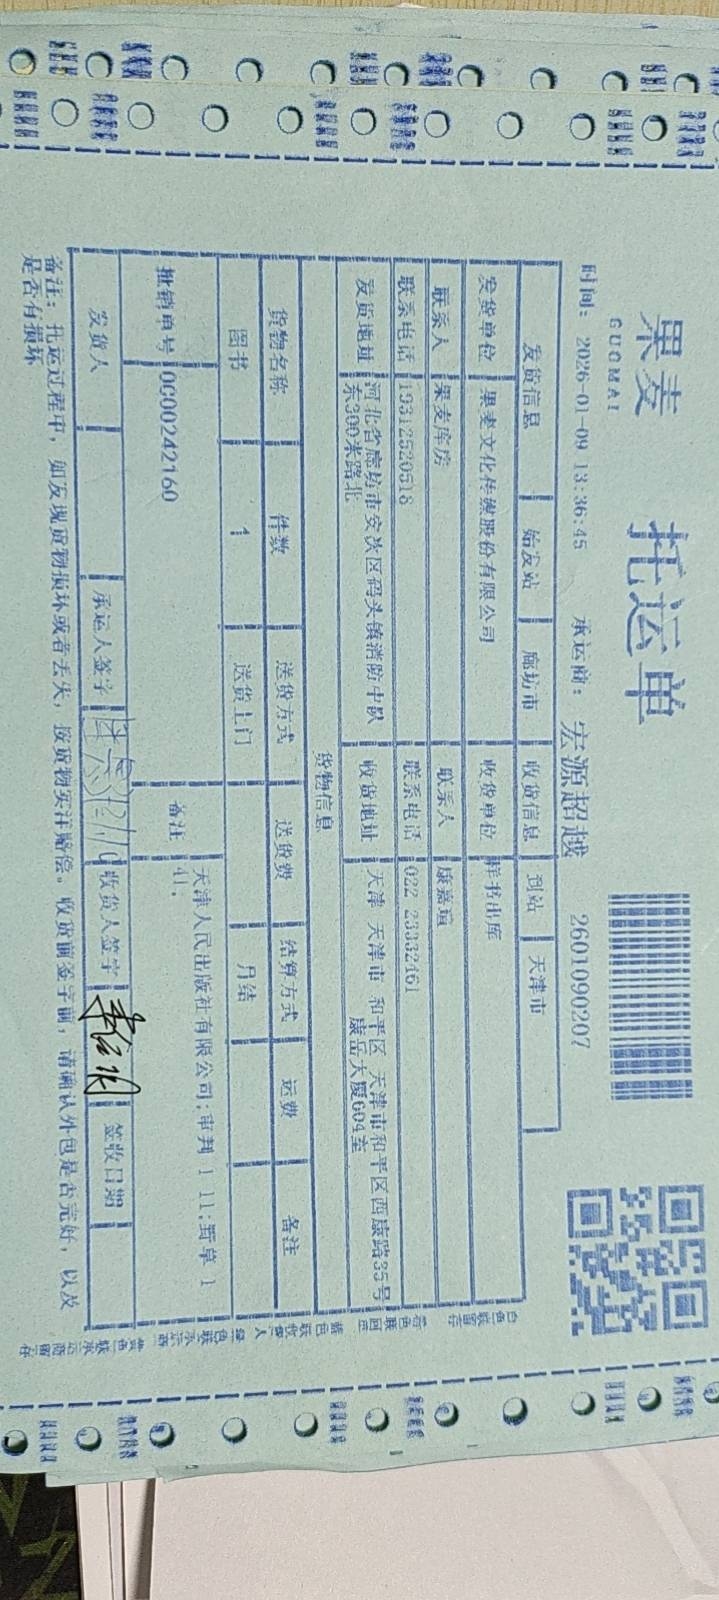 果麦
GUOMAI
托运单
时间： 2026-01-09 13:36:45 承运商： 宏源超越 2601090207
发货信息 始发站 廊坊市 收货信息 到站 天津市
发货单位 果麦文化传媒股份有限公司 收货单位 样书出库
联系人 果麦库房 联系人 康嘉瑄
联系电话 19312520518 联系电话 022 23332461
发货地址 河北省廊坊市安次区码头镇消防中队
东300米路北
收货地址 天津 天津市 和平区 天津市和平区西康路35号
康岳大厦604室
货物信息
货物名称 件数 送货方式 送货费 结算方式 运费 备注
图书 1 送货上门 月结
批销单号 0C00242160 备注 天津人民出版社有限公司;审判 1 11;野草 1
41;
发货人 承运人签字 收货人签字 签收日期
备注：托运过程中，如发现货物损坏或者丢失，按货物实洋赔偿。收货前签字前，请确认外包是否完好，以及
是否有损坏